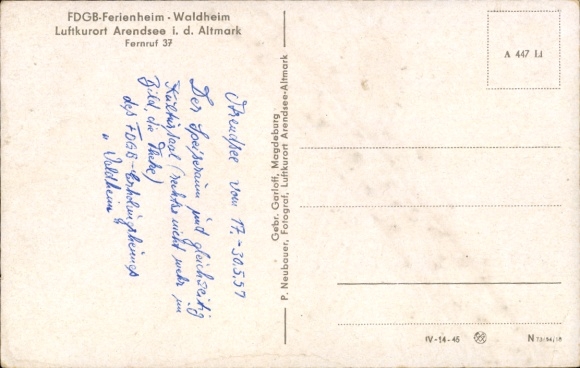 FDGB-Ferienheim - Waldheim
Luftkurort Arendsee i. d. Altmark
Fernruf 37
Arendsee vom 17.-30.5.57
Der Speiseraum und gleichzeitig
Kultursaal (rechts nicht mehr im
Bild, die Theke)
des FDGB-Erholungsheims
"Waldheim"
Gebr. Garloff, Magdeburg
P. Neubauer, Fotograf, Luftkurort Arendsee-Altmark
A 447 Li
IV-14-45
N 73/54/18